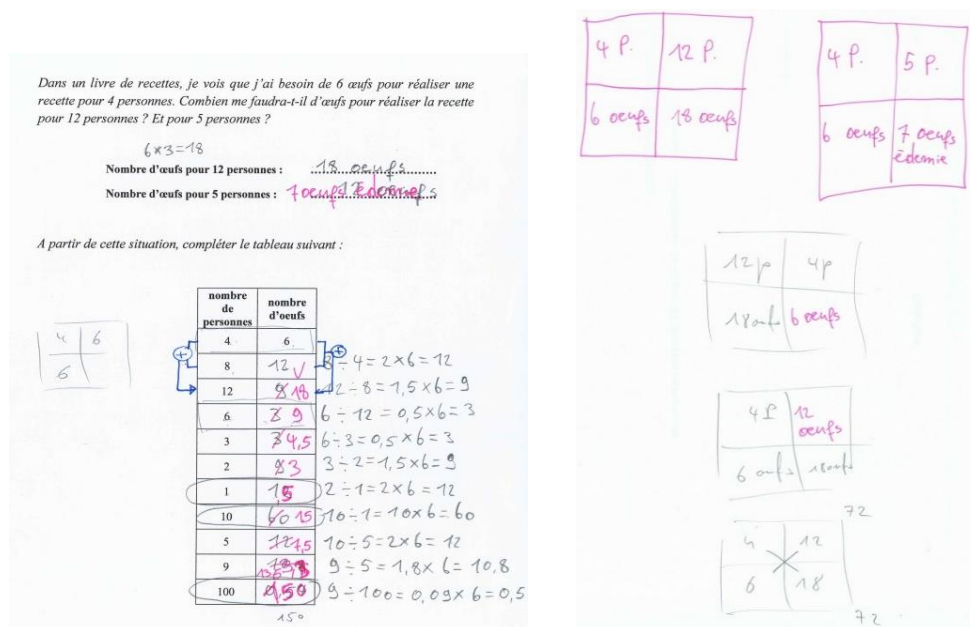 Dans un livre de recettes, je vois que j'ai besoin de 6 œufs pour réaliser une
recette pour 4 personnes. Combien me faudra-t-il d'œufs pour réaliser la recette
pour 12 personnes ? Et pour 5 personnes ?
6×3=18
Nombre d'œufs pour 12 personnes : 18 oeufs
Nombre d'œufs pour 5 personnes : 7 oeufs édemie
A partir de cette situation, compléter le tableau suivant :
4 6
6
nombre de personnes nombre d'oeufs
4 6
8 12 8÷4=2×6=12
12 18 12÷8=1,5×6=9
6 9 6÷12=0,5×6=3
3 4,5 6÷3=0,5×6=3
2 3 3÷2=1,5×6=9
1 1,5 2÷1=2×6=12
10 60 15 10÷1=10×6=60
5 12 7,5 10÷5=2×6=12
9 13,5 9÷5=1,8×6=10,8
100 150 9÷100=0,09×6=0,5
150
4 P. 12 P.
6 oeufs 18 oeufs
4 P. 5 P.
6 oeufs 7 oeufs
édemie
12p 4p
18oeufs 6 oeufs
4P 12
oeufs
6 oeufs 18oeufs
72
4 12
6 18
72